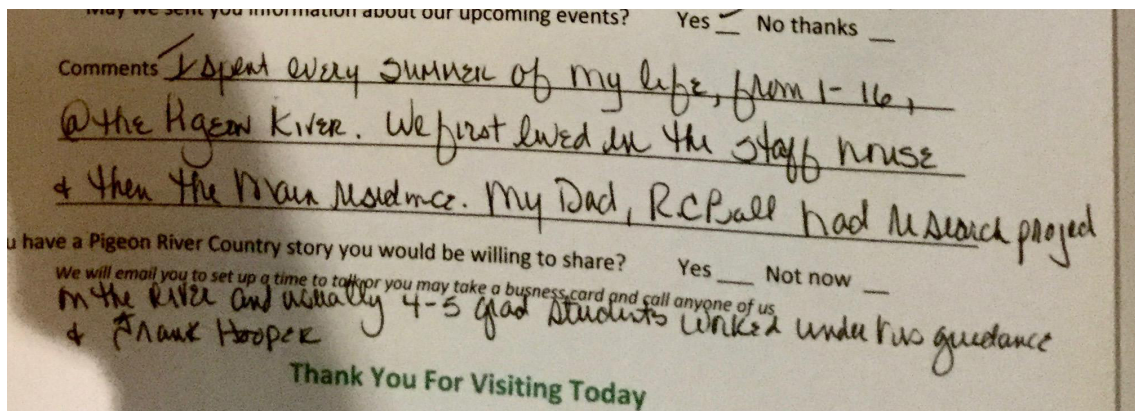 May we sent you information about our upcoming events? Yes __ No thanks __
Comments I spent every summer of my life, from 1-16,
@ the Pigeon River. We first lived in the staff house
& then the main residence. My Dad, R.C. Ball had research project
u have a Pigeon River Country story you would be willing to share? Yes ___ Not now __
We will email you to set up a time to talk or you may take a busness card and call anyone of us
on the River and usually 4-5 grad students worked under his guidance
& Frank Hooper
Thank You For Visiting Today